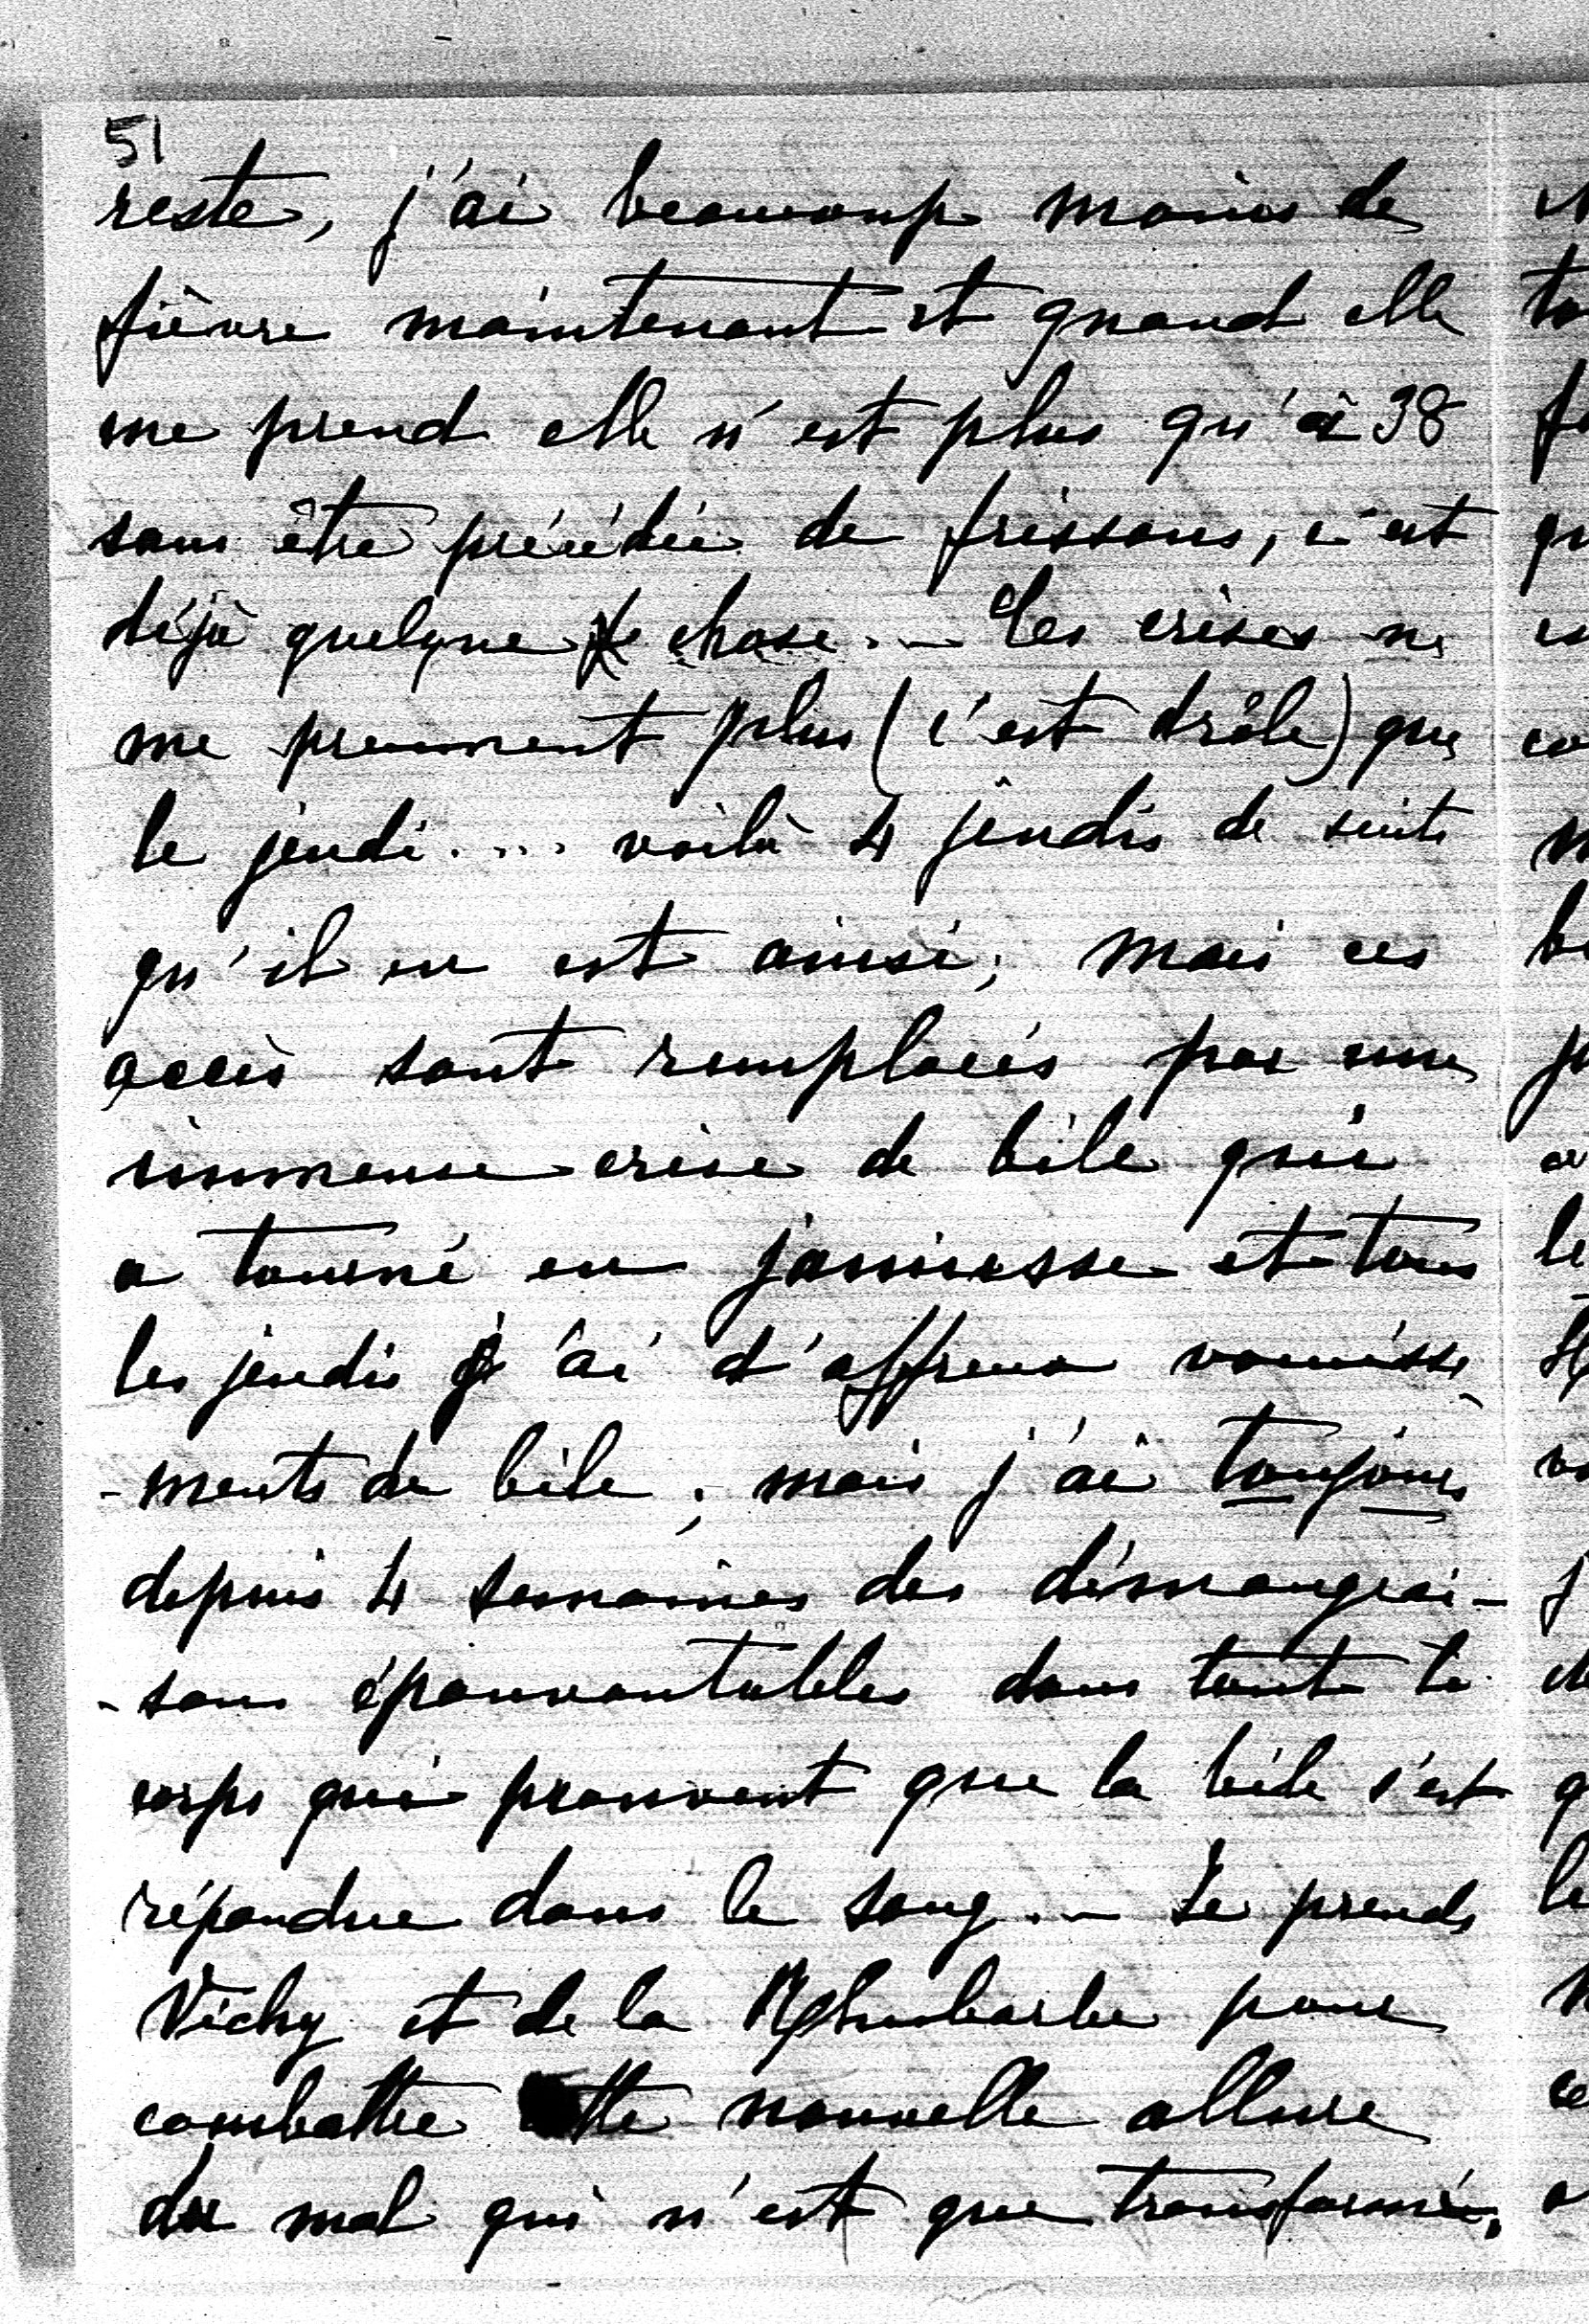 51
reste, j'ai beaucoup moins de
fièvre maintenant et quand elle
me prend elle n'est plus qu'à 38
sans être précédée de frissons, c'est
déjà quelque chose. — Les crises ne
me prennent plus (c'est drôle) que
le jeudi.... voilà 4 jeudis de suite
qu'il en est ainsi; mais ces
accès sont remplacés par une
immense crise de bile qui
a tourné en jaunisse et tous
les jeudis j'ai d'affreux vomisse-
-ments de bile; mais j'ai toujours
depuis 4 semaines des démangeai-
-sons épouvantables dans tout le
corps qui prouvent que la bile s'est
répandue dans le sang. — Je prends
Vichy et de la Rhubarbe pour
combattre cette nouvelle allure
du mal qui n'est que transformé,